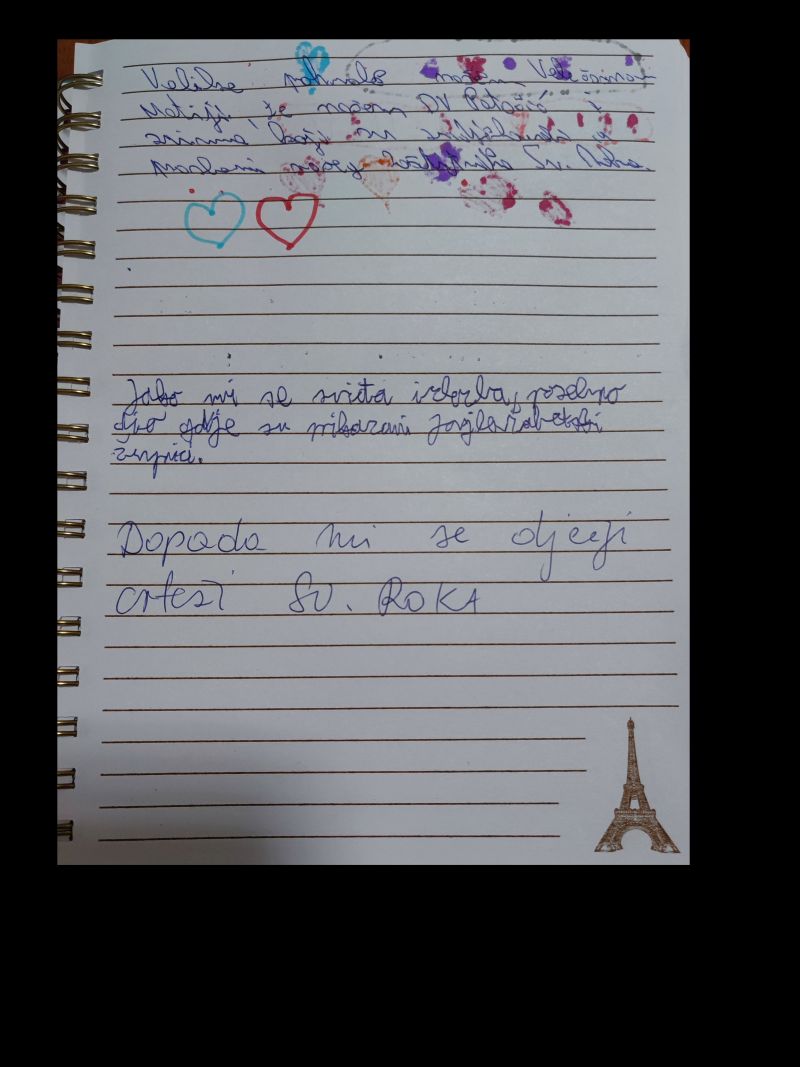 Velike pohvale našem Velečasnom
Matiji, te našem DV Potočić i
svima koji su sudjelovali u
proslavi našeg zaštitnika Sv. Roka.
Jako mi se sviđa izložba, posebno
dio gdje su prikazani
župnici.
Dopada mi se dječji
crteži SV. ROKA